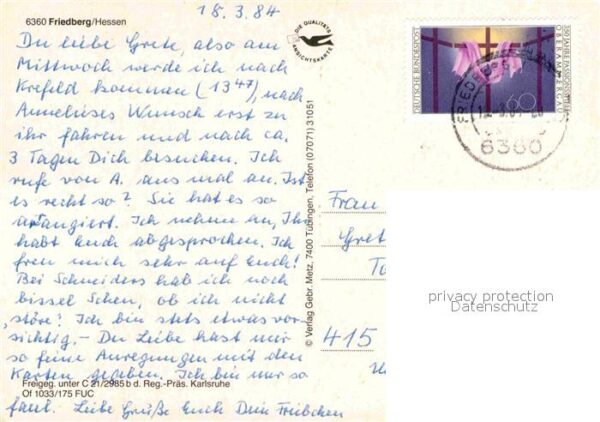 18.3.84
6360 Friedberg/Hessen
Du liebe Grete, also am
Mittwoch werde ich nach
Krefeld kommen (1347), nach
Annelieses Wunsch erst zu
ihr fahren und nach ca.
3 Tagen Dich besuchen. Ich
rufe von A. aus mal an. Ist
es recht so? Sie hat es so
arangiert. Ich nehme an, Ihr
habt Euch abgesprochen. Ich
freu mich sehr auf Euch!
Bei Schneiders hab ich noch
bissel Scheu, ob ich nicht
"störe". Ich bin stets etwas vor-
sichtig. – Du Liebe hast mir
so feine Anregungen mit den
Karten gegeben. Ich bin nur so
faul. Liebe Grüße Euch Dein
Freigeg. unter C 21/2985 b d. Reg.-Präs. Karlsruhe
Of 1033/175 FUC
DIE QUALITÄTS
ANSICHTSKARTE
© Verlag Gebr. Metz, 7400 Tübingen, Telefon (07071) 31051
DEUTSCHE BUNDESPOST
350 JAHRE PASSIONSSPIELE
OBERAMMERGAU
60
6360
Frau
Gret
415
privacy protection
Datenschutz